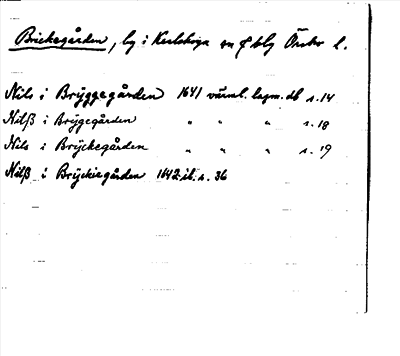 Brickegården, by i Karlskoga sn o blg Örebro l.
Nils i Brÿggegården 1641 värml. lagm. db s. 14
Nilß i Brÿgegården " " " s. 18
Nils i Brÿckegården " " " s. 19
Nilß i Brÿckiegården 1642 ib. s. 36